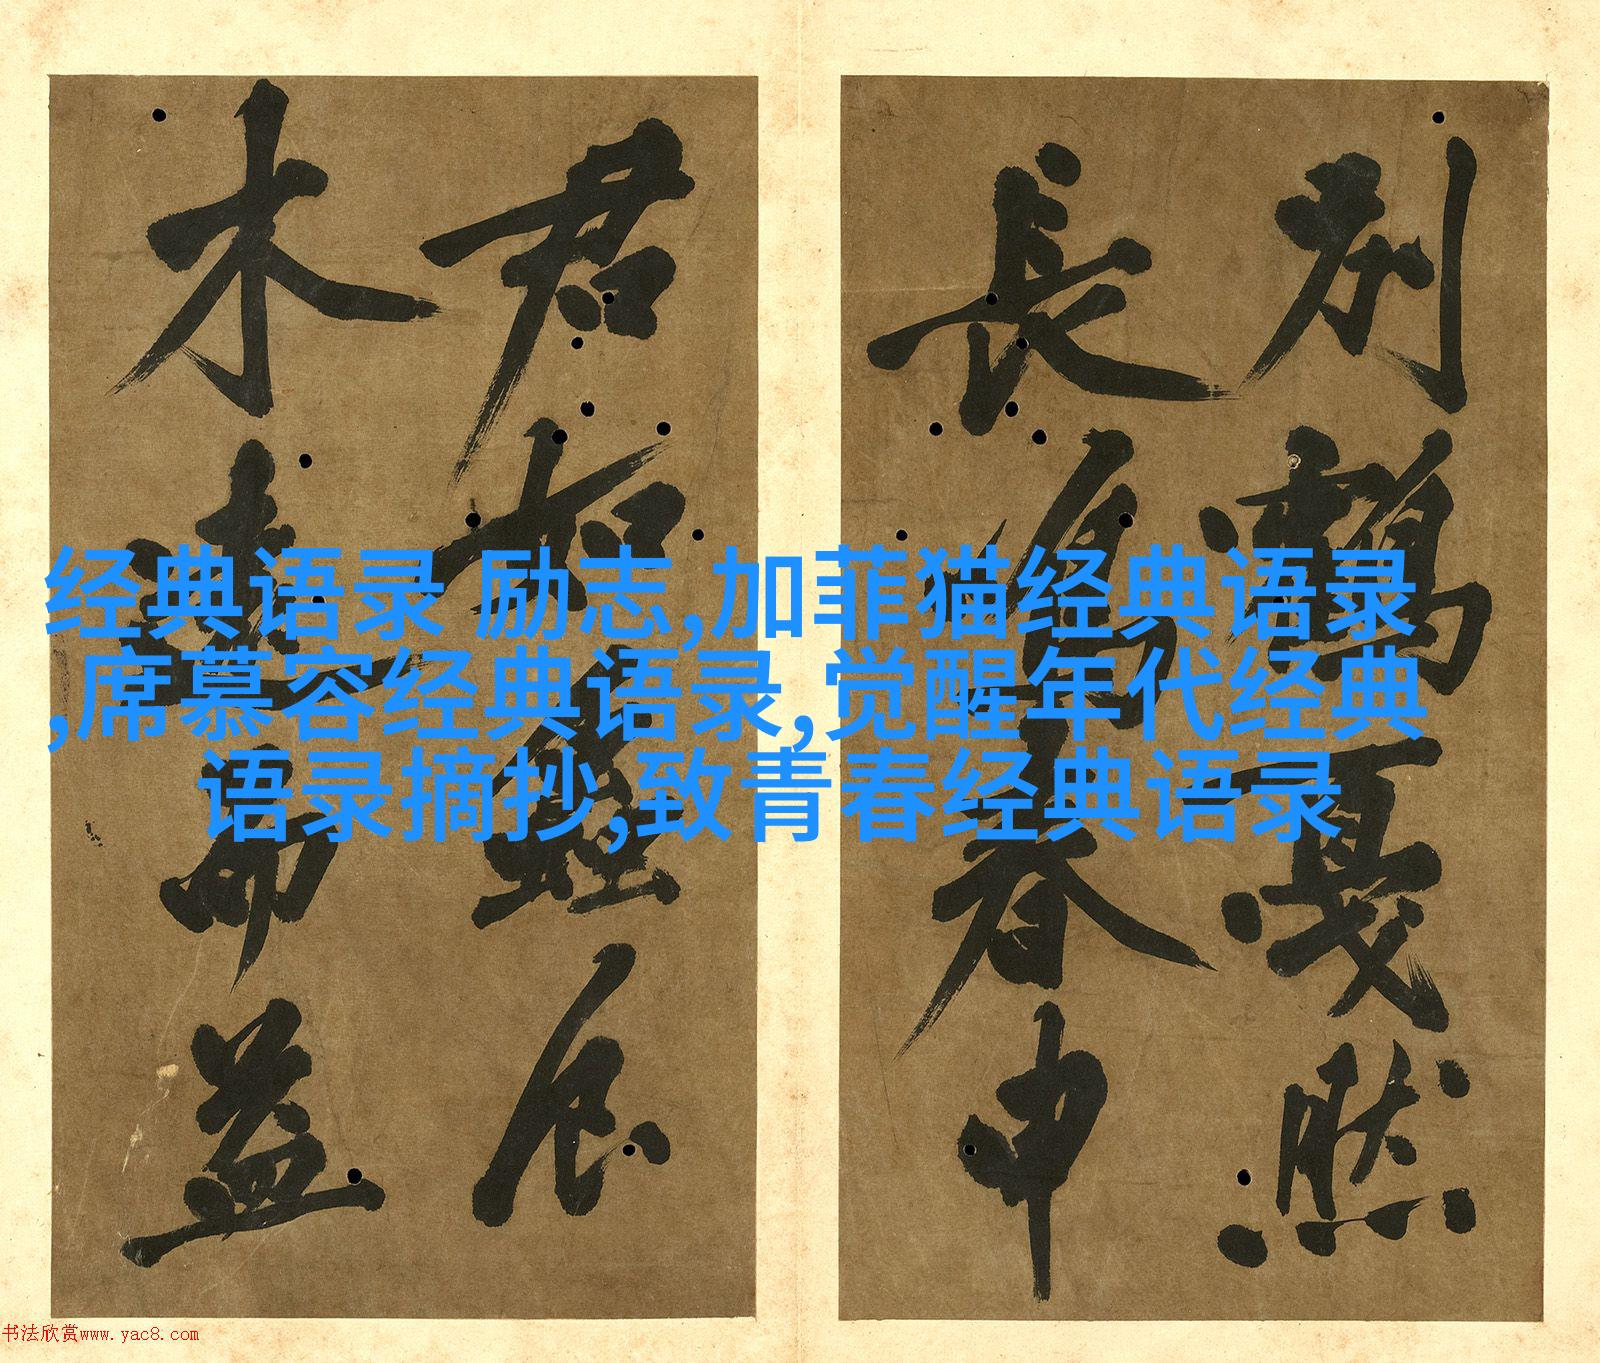 经典语录 励志,加菲猫经典语录
,席慕容经典语录,觉醒年代经典
语录摘抄,致青春经典语录
別鶴戛然
長鳴春申
君如
木而益
书法欣赏www.yac8.com